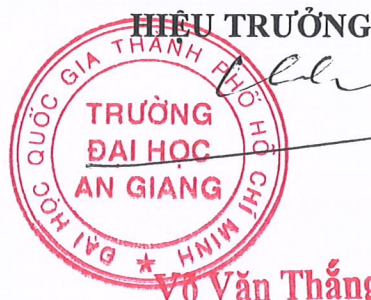 HIỆU TRƯỞNG
ĐẠI HỌC QUỐC GIA THÀNH PHỐ HỒ CHÍ MINH
TRƯỜNG
ĐẠI HỌC
AN GIANG
Võ Văn Thắng